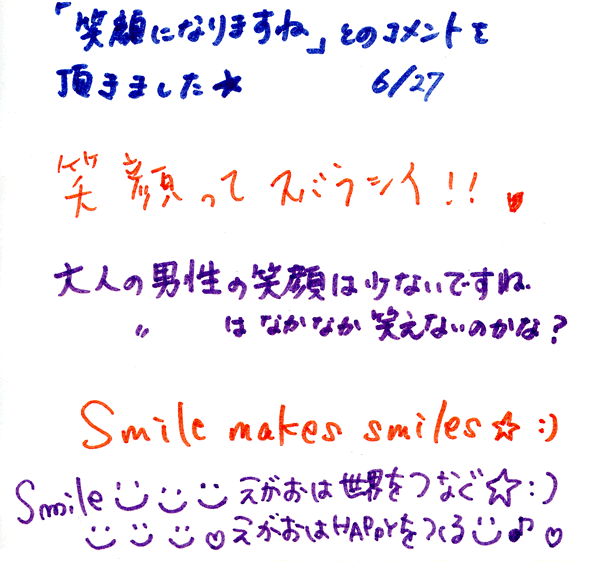 「笑顔になりますね」とのコメントを
頂きました★ 6/27
笑顔ってスバラシイ!!♥
大人の男性の笑顔は少ないですね.
〃 はなかなか笑えないのかな?
Smile makes smiles☆:)
Smile えがおは世界をつなぐ☆:)
♡えがおはHAPPYをつくる ♪♡